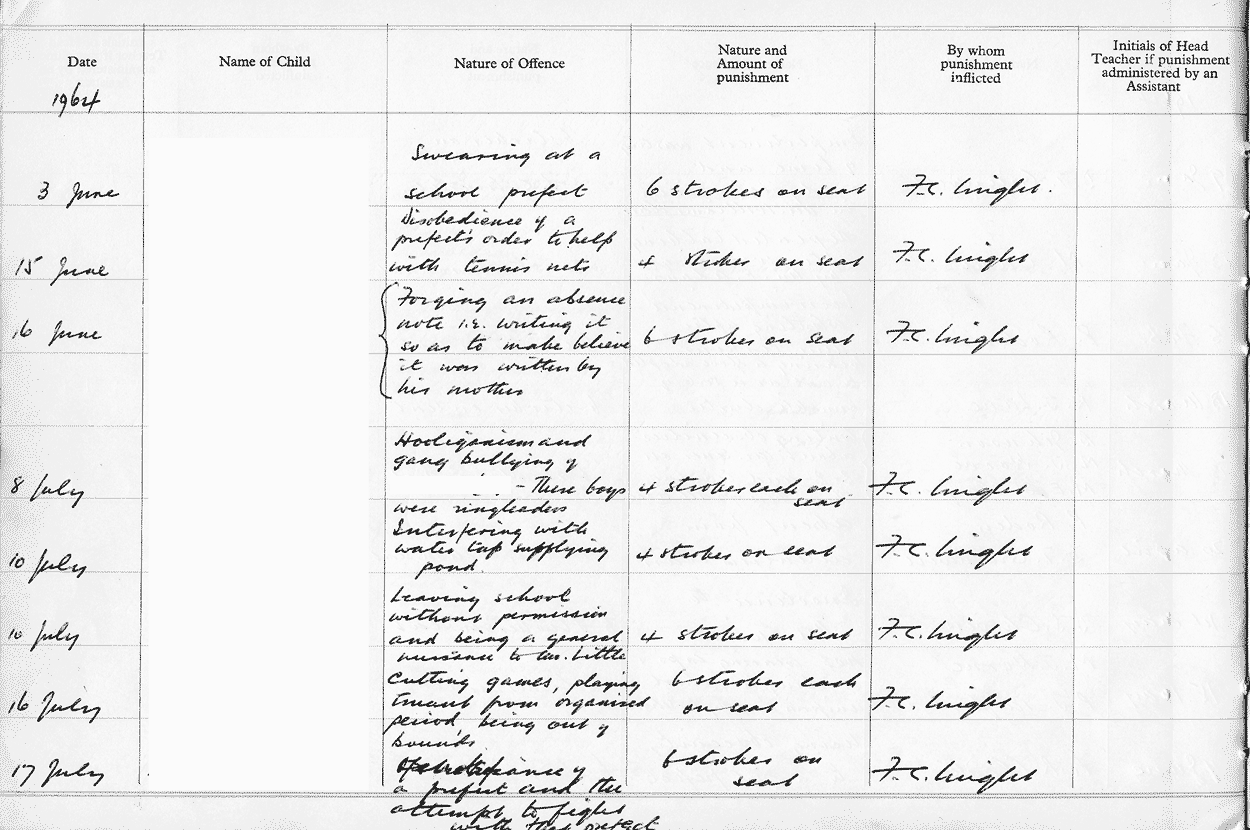 Date
Name of Child
Nature of Offence
Nature and
Amount of
punishment
By whom
punishment
inflicted
Initials of Head
Teacher if punishment
administered by an
Assistant
1964
3 June
Swearing at a
school prefect
6 strokes on seat
F.C. Wright.
15 June
Disobedience of a
prefect's order to help
with tennis nets
4 strokes on seat
F.C. Wright
16 June
Forging an absence
note i.e. writing it
so as to make believe
it was written by
his mother
6 strokes on seat
F.C. Wright
8 July
Hooliganism and
gang bullying of
- These boys
were ringleaders
4 strokes each on
seat
F.C. Wright
10 July
Interfering with
water tap supplying
pond.
4 strokes on seat
F.C. Wright
10 July
Leaving school
without permission
and being a general
nuisance to Mr. Little
4 strokes on seat
F.C. Wright
16 July
Cutting games, playing
truant from organised
period, being out of
bounds
6 strokes each
on seat
F.C. Wright
17 July
of
a prefect and the
attempt to fight
with that prefect
6 strokes on
seat
F.C. Wright